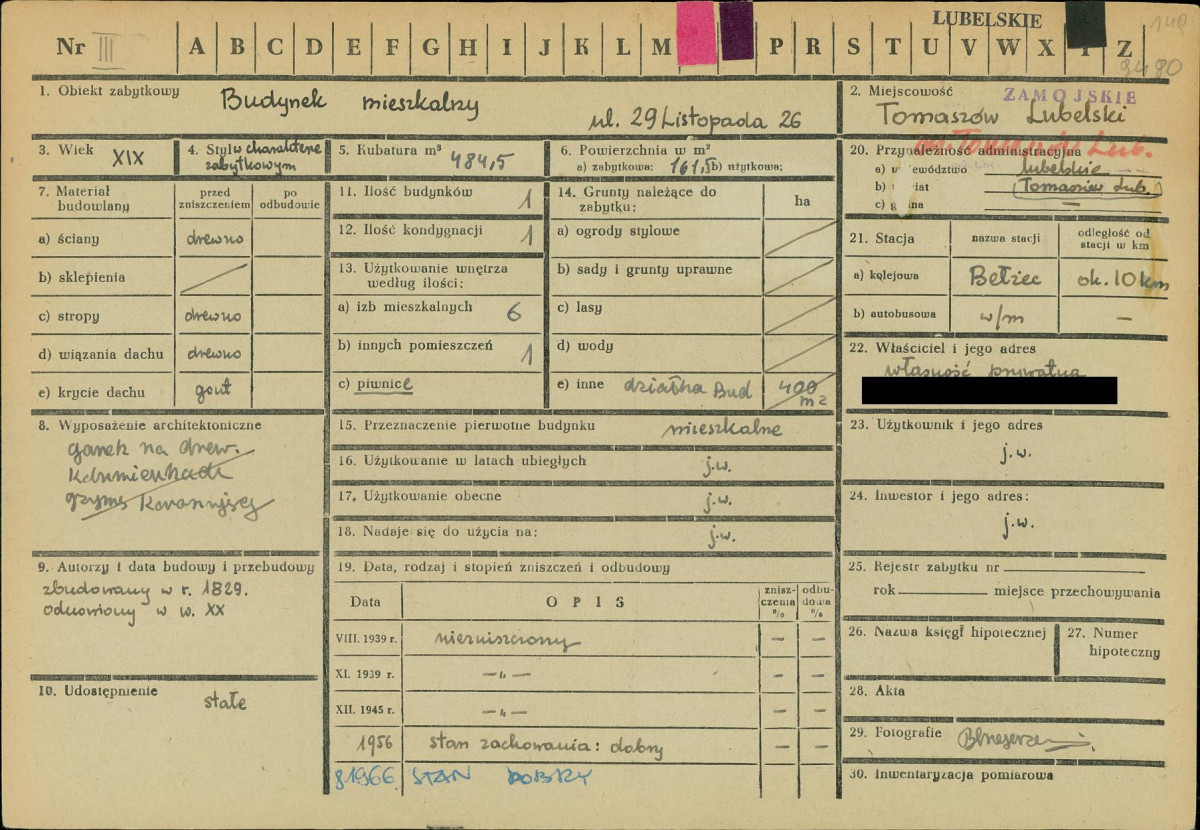 LUBELSKIE
148
Nr III A B C D E F G H I J K L M P R S T U V W X Y Z
9480
1. Obiekt zabytkowy Budynek mieszkalny
ul. 29 Listopada 26
2. Miejscowość ZAMOJSKIE
Tomaszów Lubelski
3. Wiek XIX
4. Styl w charakterze
zabytkowym
5. Kubatura m³ 484,5
6. Powierzchnia w m²
a) zabytkowa: 161,5 b) użytkowa:
20. Przynależność administracyjna
m. Tomaszów Lub.
a) województwo lubelskie
b) powiat Tomaszów Lub.
c) gmina —
7. Materiał
budowlany
przed
zniszczeniem
po
odbudowie
a) ściany drewno
b) sklepienia
c) stropy drewno
d) wiązania dachu drewno
e) krycie dachu gont
11. Ilość budynków 1
12. Ilość kondygnacji 1
13. Użytkowanie wnętrza
według ilości:
a) izb mieszkalnych 6
b) innych pomieszczeń 1
c) piwnice
14. Grunty należące do
zabytku:
ha
a) ogrody stylowe
b) sady i grunty uprawne
c) lasy
d) wody
e) inne działka Bud 400
m2
21. Stacja nazwa stacji odległość od
stacji w km
a) kolejowa Bełżec ok. 10 km
b) autobusowa w/m —
22. Właściciel i jego adres
własność prywatna
8. Wyposażenie architektoniczne
ganek na drew.
gzyms
15. Przeznaczenie pierwotne budynku mieszkalne
16. Użytkowanie w latach ubiegłych j.w.
17. Użytkowanie obecne j.w.
18. Nadaje się do użycia na: j.w.
23. Użytkownik i jego adres
j.w.
24. Inwestor i jego adres:
j.w.
9. Autorzy i data budowy i przebudowy
zbudowany w r. 1829.
odnowiony w w. XX
10. Udostępnienie
stałe
19. Data, rodzaj i stopień zniszczeń i odbudowy
Data OPIS znisz-
czenia
%
odbu-
dowa
%
VIII. 1939 r. niezniszczony — —
XI. 1939 r. —„— — —
XII. 1945 r. —„— — —
1956 stan zachowania: dobry — —
8.1966 STAN DOBRY
25. Rejestr zabytku nr
rok miejsce przechowywania
26. Nazwa księgi hipotecznej
27. Numer
hipoteczny
28. Akta
29. Fotografie
30. Inwentaryzacja pomiarowa